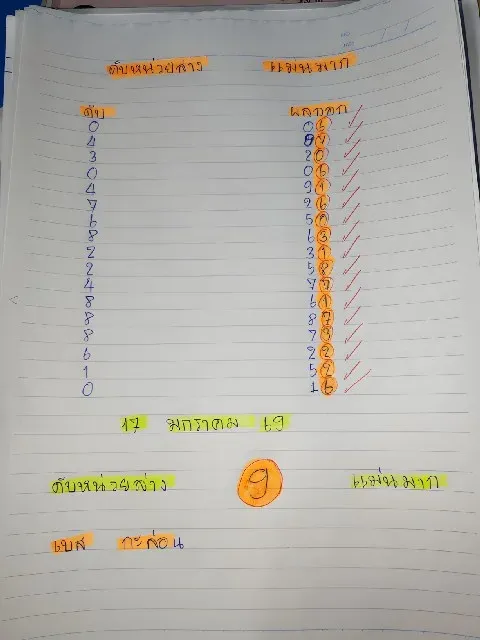 ดับหน่วยล่าง แม่นมาก
ดับ ผลออก
0 06 ✓
4 97 ✓
3 20 ✓
0 06 ✓
4 91 ✓
7 26 ✓
6 50 ✓
8 63 ✓
2 31 ✓
2 58 ✓
4 77 ✓
8 61 ✓
8 87 ✓
8 79 ✓
6 22 ✓
1 52 ✓
0 16 ✓
17 มกราคม 69
ดับหน่วยล่าง 9 แม่นมาก
เบส กะล่อน